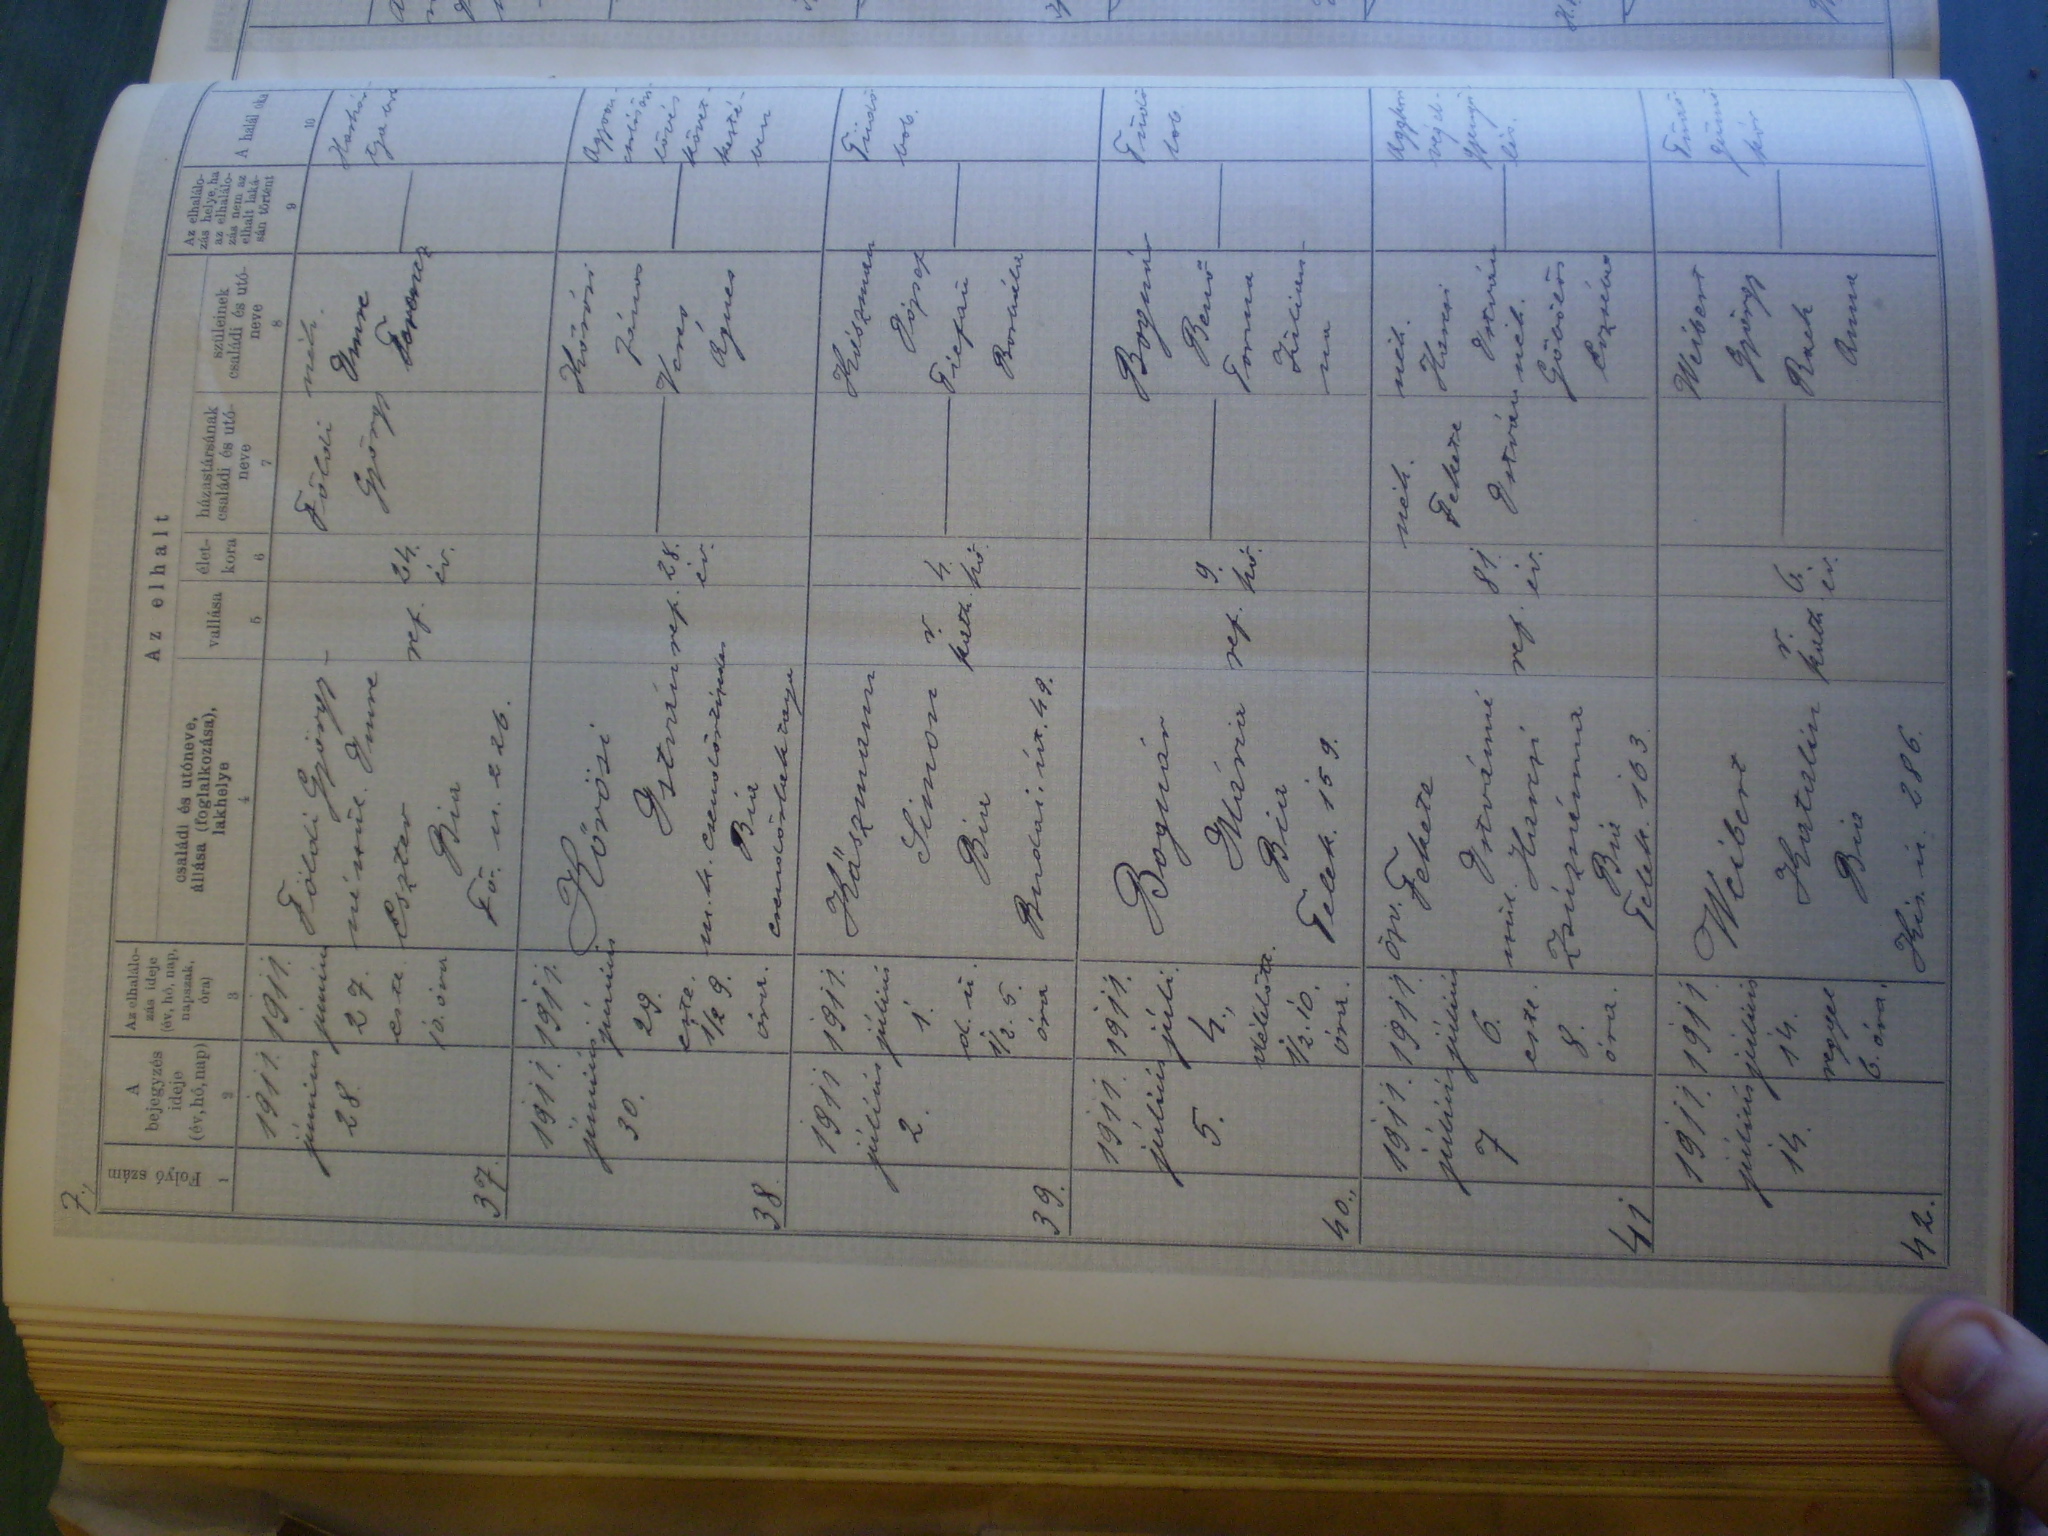 7.,
Az elhalt
Folyó szám
A bejegyzés ideje (év, hó, nap)
Az elhalálo-
zás ideje
(év, hó, nap,
napszak,
óra)
családi és utóneve,
állása (foglalkozása),
lakhelye
vallása
élet-
kora
házastársának
családi és utó-
neve
szüleinek
családi és utó-
neve
Az elhalálo-
zás helye, ha
az elhalálo-
zás nem az
elhalt laká-
sán történt
A halál oka
1
2
3
4
5
6
7
8
9
10
37.
1911.
június
28.
1911.
június
27.
este
10. óra
Földi György-
né szül. Imre
Eszter
Bia
Fő. u. 226.
ref.
24.
év.
Földi
György
néh.
Imre
Ferencz
38.
1911.
június
30.
1911.
június
29.
este.
1/2 9.
óra.
Kőrösi
István
m. k. csendőrőrmester
Bia
csendőrlaktanya
ref.
28.
év.
Kőrösi
János
Veres
Ágnes
39.
1911
július
2.
1911.
július
1.
d. u.
1/2. 5.
óra
Kászmann
Simon
Bia
Budai. út. 49.
r.
kath.
4.
hó.
József
Borbála
Tüdő
lob.
40.,
1911.
július
5.
1911.
júli.
4.,
délelőtt.
1/2. 10.
óra.
Bognár
Mária
Bia
Telek. 159.
ref.
9.
hó.
Bognár
Benő
Torma
Julian
na
Tüdő
lob
41
1911.
július
7
1911.
július
6.
este.
8.
óra.
özv. Fekete
Istvánné
szül. Hansi
Zsuzsánna
Bia
Telek. 163.
ref.
81.
év.
néh.
Fekete
István
néh.
István
néh.
42.
1911.
július
14.
1911.
július
14.
reggel
6. óra.
Weibert
Katalin
Bia
Kis. u. 286.
r.
kath.
6.
év.
Weibert
György
Anna
Tüdő
gümő
kór